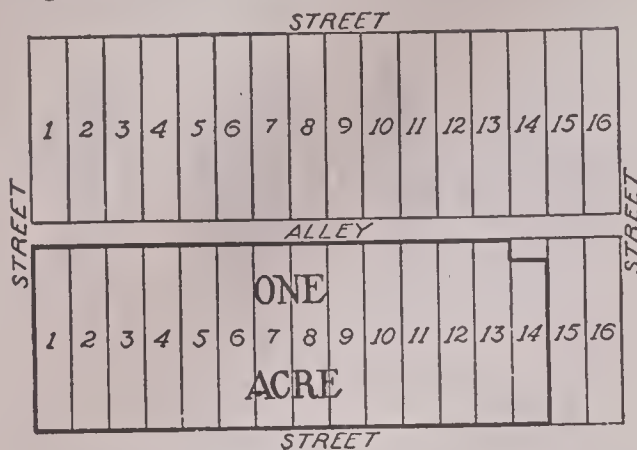 STREET
1 2 3 4 5 6 7 8 9 10 11 12 13 14 15 16
STREET
STREET
ALLEY
ONE
1 2 3 4 5 6 7 8 9 10 11 12 13 14 15 16
ACRE
STREET